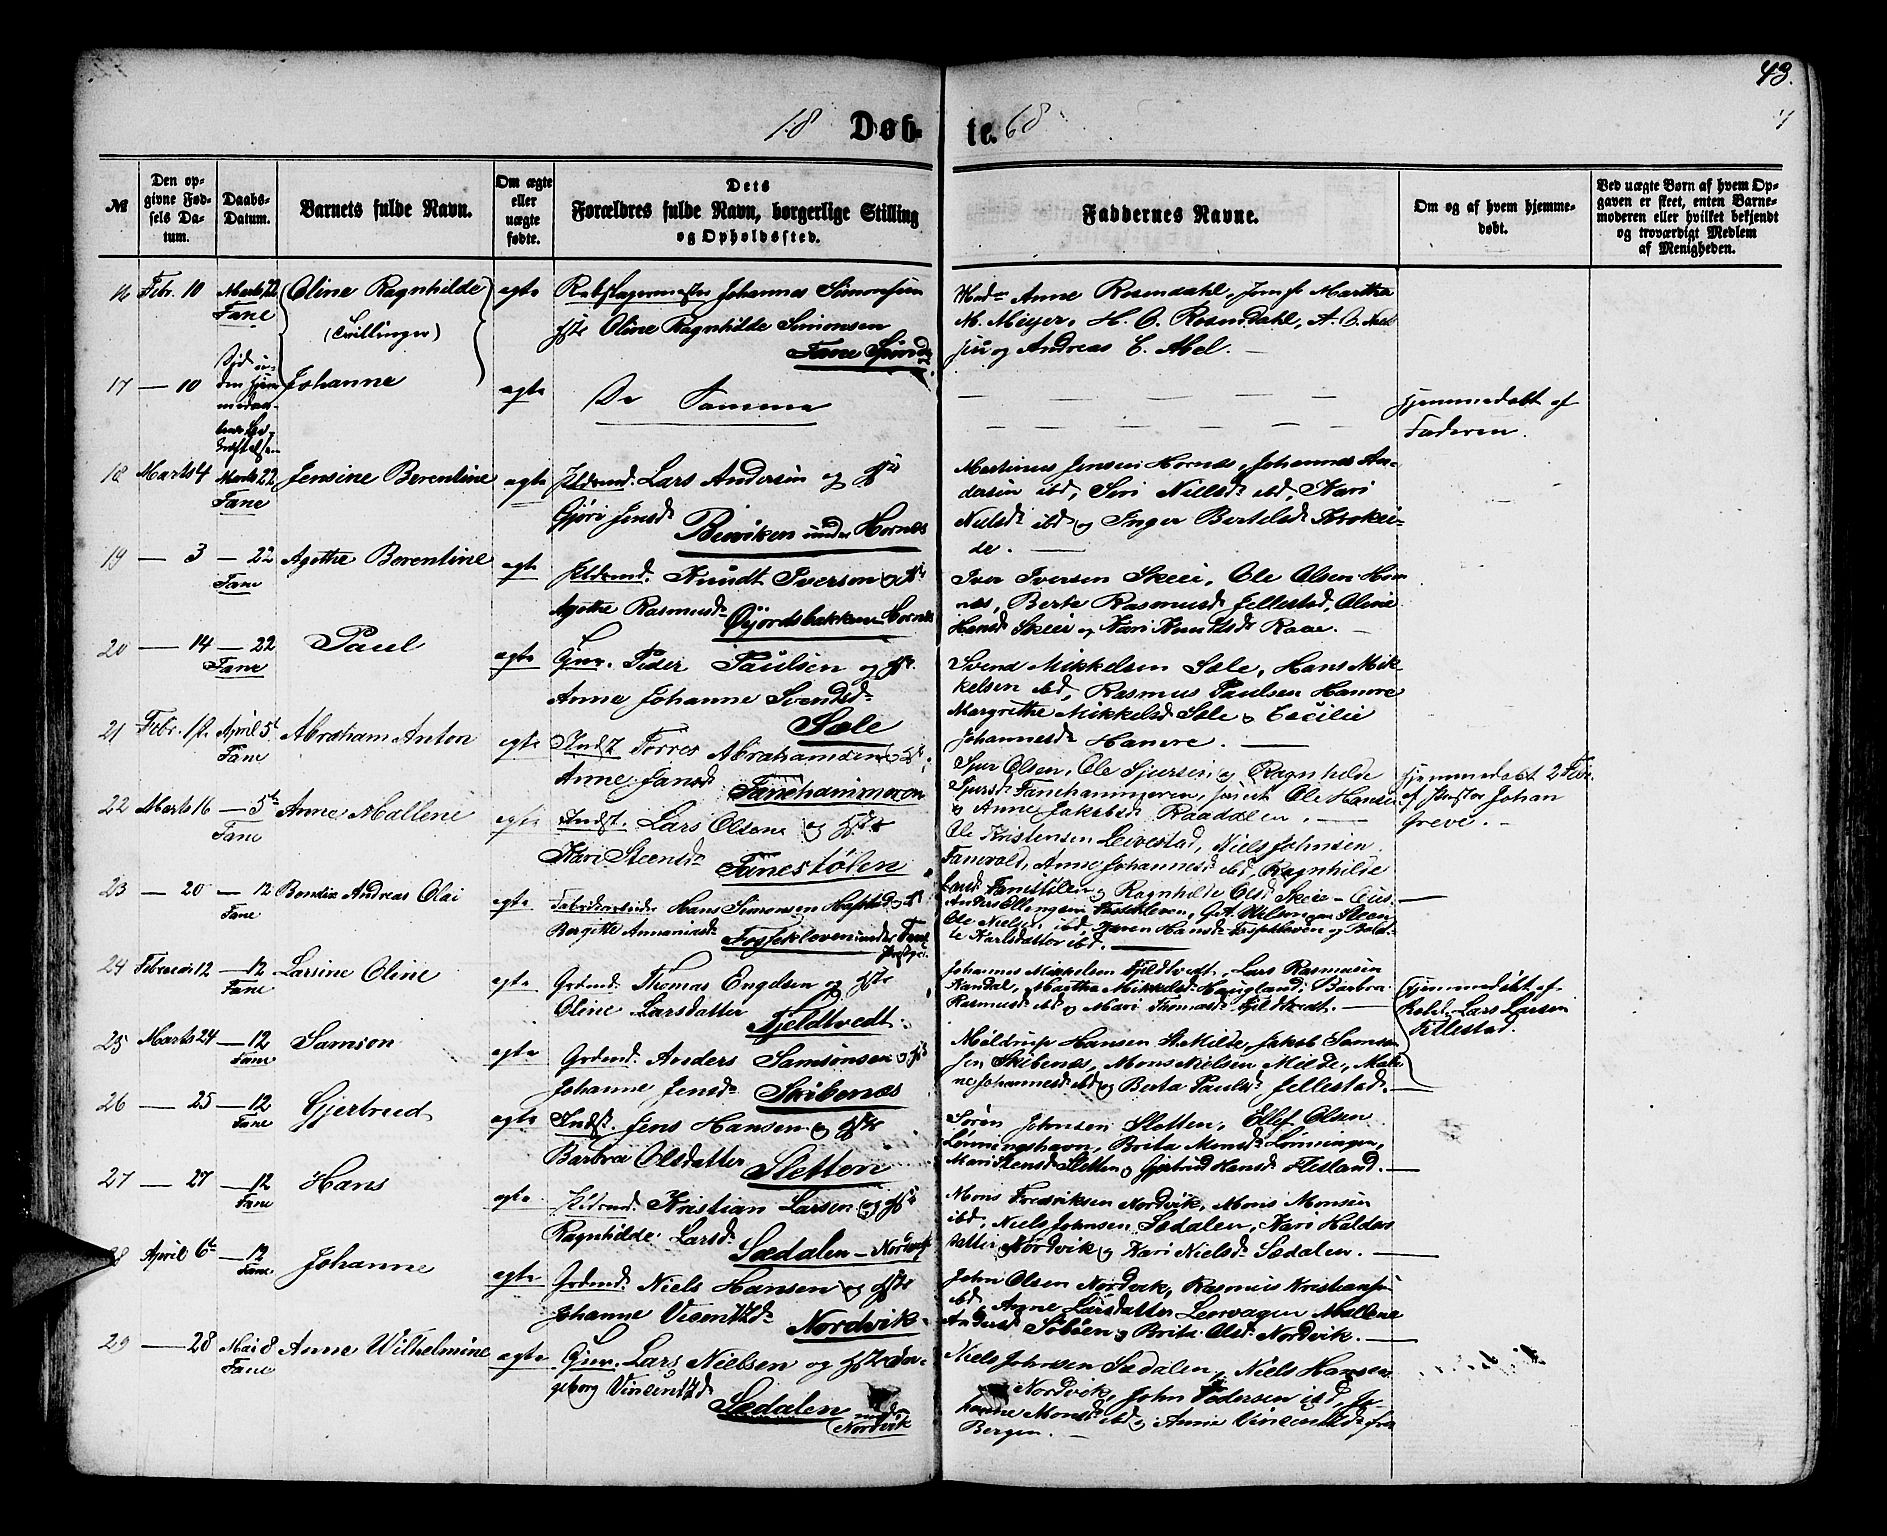 43.
18 Døb-
te. 68
№
Den op-
givne Fød-
sels Da-
tum.
Daabs-
Datum.
Barnets fulde Navn.
Om ægte
eller
uægte
fødte.
Dets
Forældres fulde Navn, borgerlige Stilling
og Opholdssted.
Faddernes Navne.
Om og af hvem hjemme-
døbt.
Ved uægte Børn af hvem Op-
gaven er skeet, enten Barne-
moderen eller hvilket bekjendt
og troværdigt Medlem
af Menigheden.
16 Febr. 10 Marts 22 Oline Ragnhilde egte Rebslagermester Johannes Simonsen
Fane (Tvillinger) Hstr Oline Ragnhilde Simonsen
Fane
Anne Rosendahl, Jomf. Martha
M. Meyer, H. O. Rosendahl, A. B. Niel
sen og Andreas C. Abel. —
17 — 10 Johanne egte De Samme
Hjemmedøbt af
Faderen.
18 Marts 4 Marts 22 Jensine Berentine egte Lars Andersen og Hstr
Fane Gjøri Jensd.
under Hornes
Martinus Jensen Hornæs, Johannes An-
dersen ibd, Siri Nielsd. ibd, Kari
Nielsd. ibd og Inger Bertelsd. Krokei-
de. —
19 — 3 — 22 Agethe Berentine egte Knudt Iverson og Hstr
Fane Agethe Rasmusd. Øyjordsbakken Hornes
Iver Iversen Skeie, Ole Olsen Hor
næs, Berte Rasmusd. Jellestad, Oline
Hansd. Skeie og Kari Knudsd. Raae. —
20 — 14 — 22 Paul egte Gmr. Peder Paulsen og Hstr.
Fane Anne Johanne Svendsd.
Sæle
Svend Mikkelsen Sæle, Hans Mik
kelsen ibd, Rasmus Paulsen Hamre
Margrethe Mikkelsd. Sæle og Cecilie
Johannesd. Hamre. —
21 Febr. 1 April 5te Abraham Anton egte Indst. Torres Abrahamsen og Hstr
Fane Anne Jansd. Fanehammeren
Sjur Olsen, Ole Sjursen og Ragnhilde
Sjursd. Fanehammeren, samt Ole Hansen
og Anne Jakobsd. Raadalen. —
Hjemmedøbt 2 Febr.
af Johan
Greve. —
22 Marts 16 — 5te Anne Mallene egte Indst. Lars Olsen og Hstr
Fane Kari Steensd. Fanestölen
Ole Kristensen Leivestad, Niels Johnsen
Fanevold, Anne Johannesd. ibd, Ragnhilde
Larsd. Fanestölen og Ragnhilde Olsd. Skeie —
23 — 20 — 12 Andreas Olai egte Hans Simonsen og Hstr
Fane Annaniasd. under Fane
Ole Nielsen, ibd, Karen Hansd.
te Karlsdatter ibd. —
24 Februar 12 — 12 Larsine Oline egte Grdmd. Thomas Engelsen og Hstr
Fane Oline Larsdatter Fjeldtvedt.
Johannes Mikkelsen Fjeldtvedt, Lars Rasmusen
Kandal, Martha Mikkelsd. Haugland, Barbra
Rasmusd. ibd og Mari Thomasd. Fjeldtvedt. —
Hjemmedøbt af
Lars Larsen
Titlestad.
25 Marts 24 — 12 Samson egte Grdmd. Anders Samsonsen og Hstr
Fane Johanne Jensd. Skibenæs
Meldrup Hansen St. Milde, Jakob Samson
sen Skibenæs, Mons Nielsen Milde,
ne Johannesd. ibd og Berta Paulsd. Jellestad. —
26 — 25 — 12 Gjertrud egte Indst. Jens Hansen og Hstr
Fane Barbra Olsdatter Sletten
Søren Johnsen Sletten, Ellef Olsen
Lønningshavn, Brita Monsd. Lønningen,
Mari Stensd. Sletten og Gjertrud Hansd. Flesland. —
27 — 27 — 12 Hans egte Kristian Larsen og Hstr
Fane Ragnhilde Larsd. Sædalen — Nordvik
Mons Fredriksen Nordvik, Mons Monsen
ibd, Niels Johnsen Sædalen, Kari Haldors
datter Nordvik og Kari Nielsd. Sædalen. —
28 April 6te — 12 Johanne egte Grdmd. Niels Hansen og Hstr
Fane Johanne Vincentzd. Nordvik.
John Olsen Nordvik, Rasmus Kristiansen
ibd, Anne Larsdatter Lervaagen Mallene
Andersd. Søbøen og Brite Olsd. Nordvik. —
29 — 28 Mai 8 Anne Wilhelmine egte Gmr. Lars Nielsen og Hstr In-
Fane geborg Vincentzd.
Sædalen under
Nordvik
Niels Johnsen Sædalen, Niels Hansen
Nordvik, John Pedersen ibd, Jo-
hanne Monsd. ibd og Anne Vincentzd. fra
Bergen. —